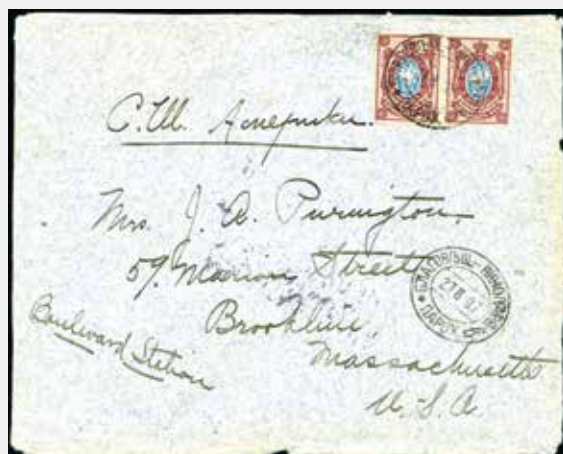 С.Ш. Америки.
Mrs. J. A. Purington.
59. Marion Street
Brookline,
Massachusetts
U.S.A.
Boulevard Station
ПАРОХ.